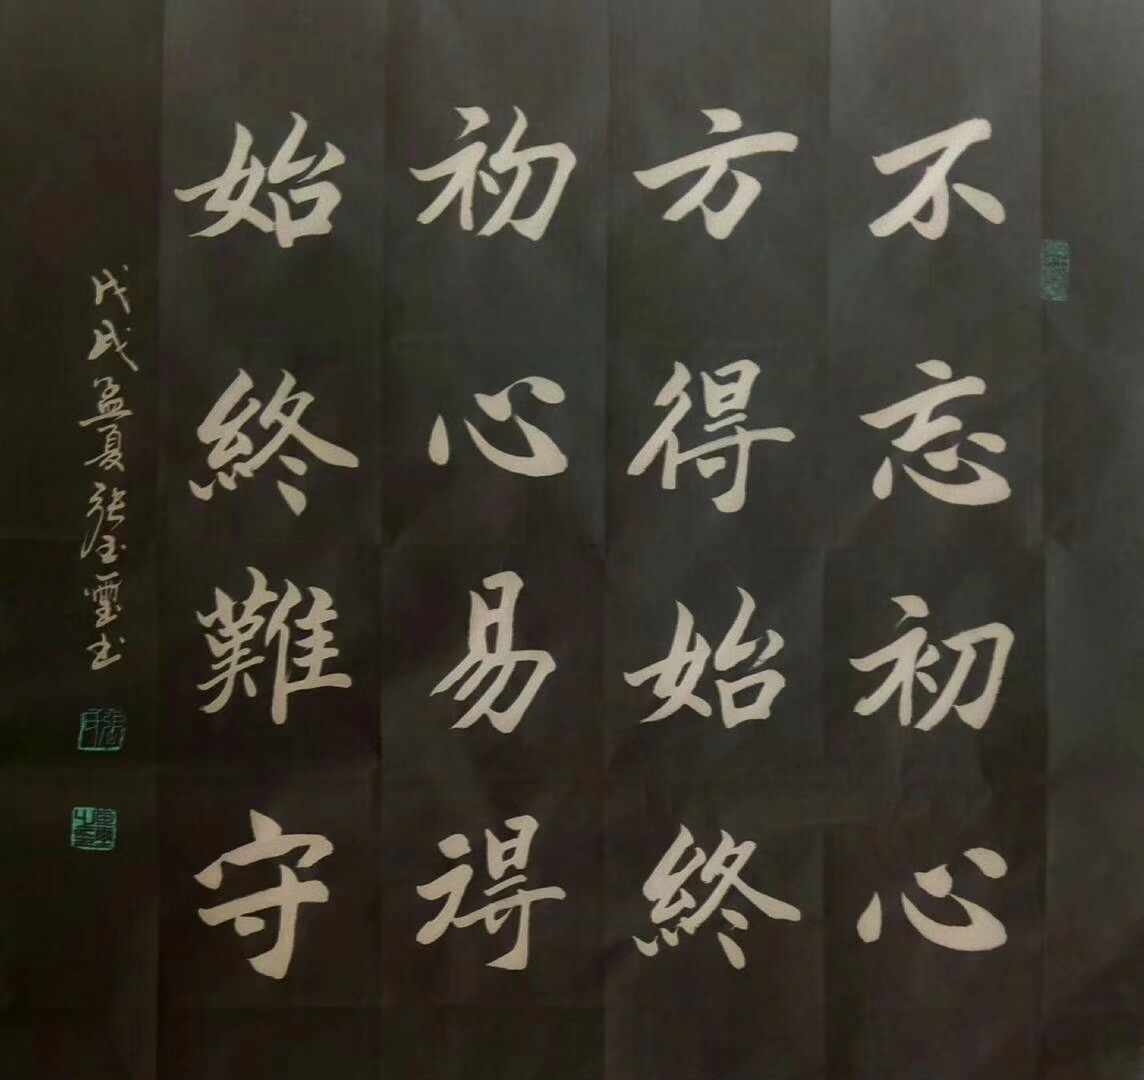 不忘初心
方得始終
初心易得
始終難守
戊戌孟夏張玉璽书